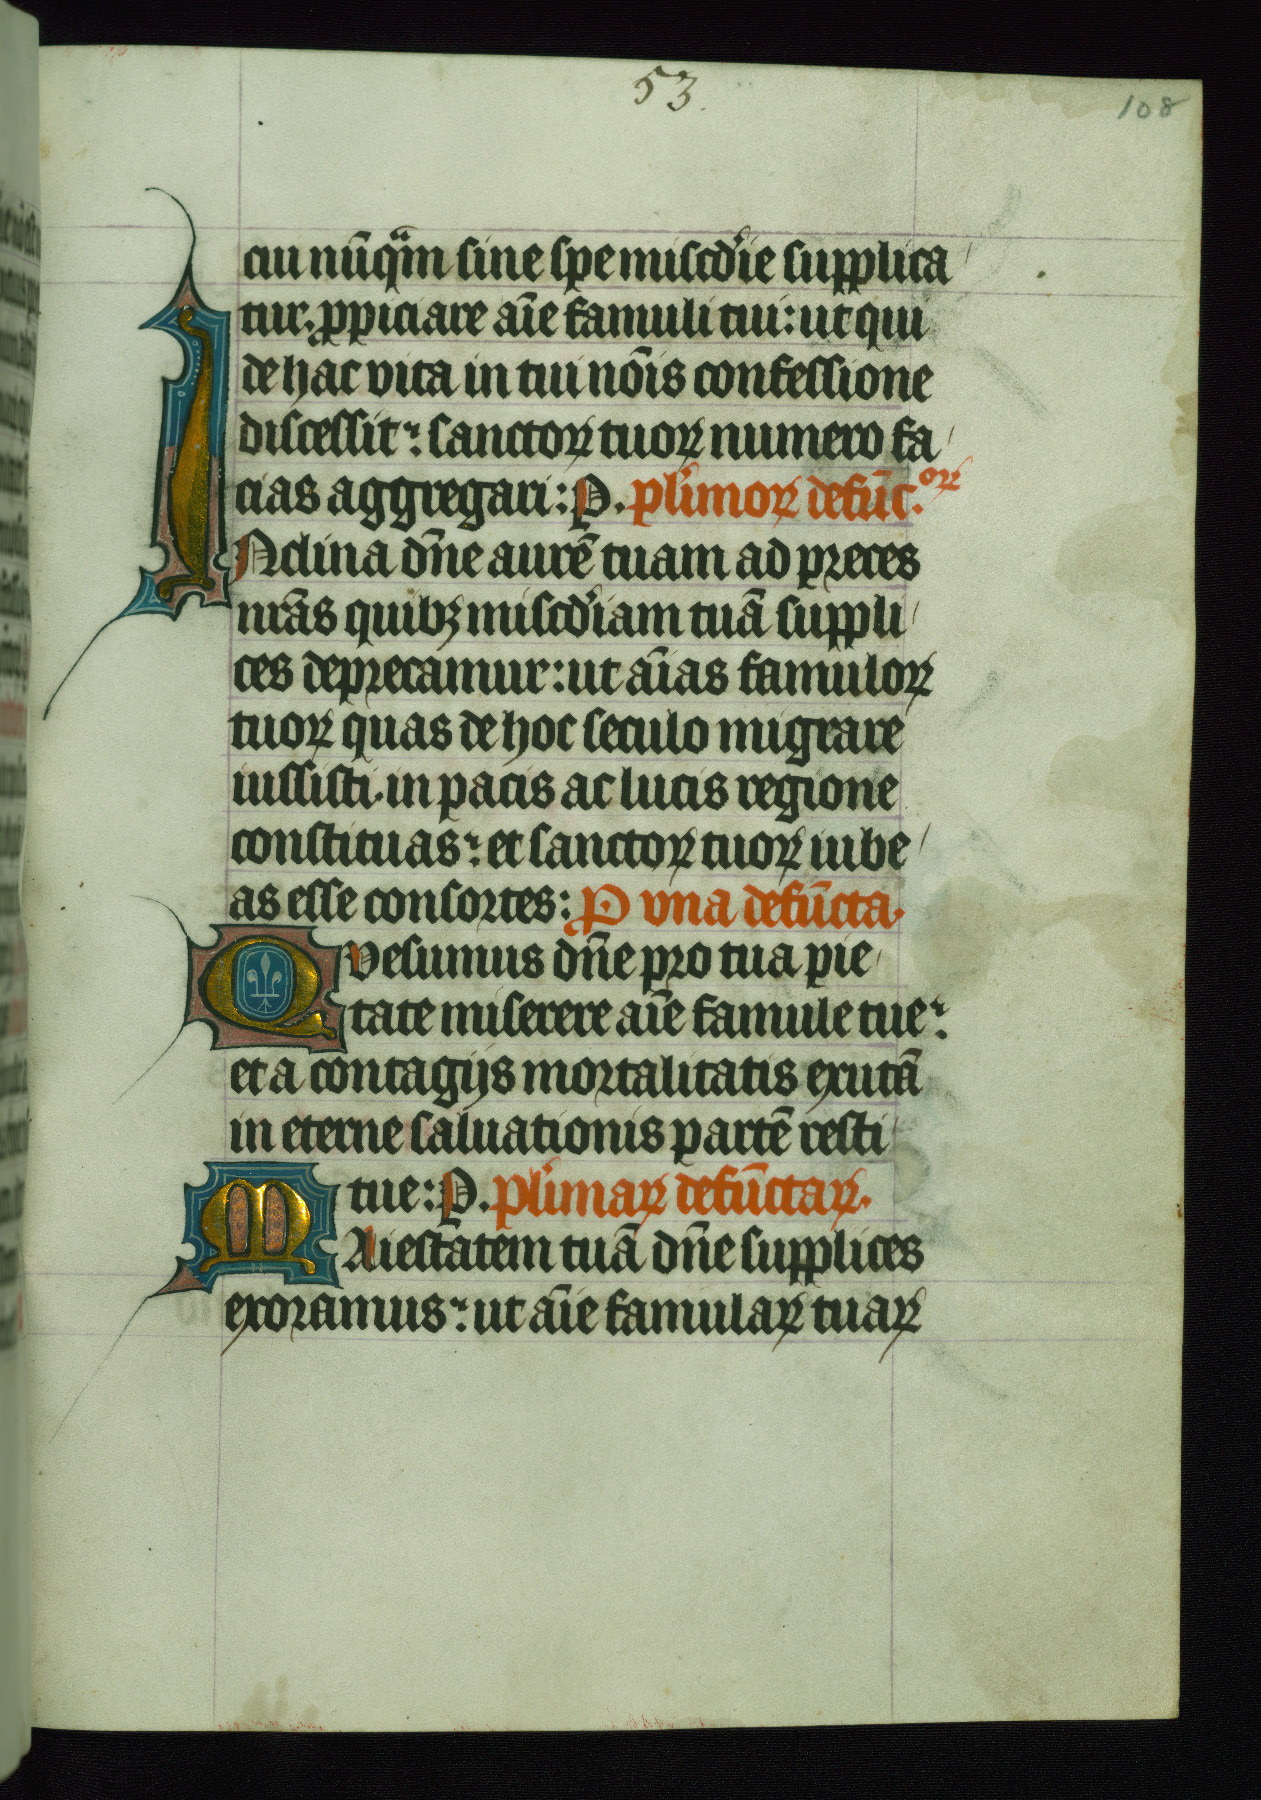 53.
108
cui nūqᵃm sine spe miscd'ie supplica
tur. ppiciare aīe famuli tui: ut qui
de hac vita in tui nōis confessione
discessit: sanctoꝝ tuoꝝ numero fa
cias aggregari: P. pl'imoꝝ defūc.oꝝ
INclina dn̄e aurē tuam ad preces
nr̄as quibꝫ miscd'iam tuā suppli
ces deprecamur: ut aīas famuloꝝ
tuoꝝ quas de hoc seculo migrare
iussisti. in pacis ac lucis regione
constituas: et sanctoꝝ tuoꝝ iube
as esse consortes: P vna defūcta.
Qvesumus dn̄e pro tua pie
tate miserere aīe famule tue:
et a contagijs mortalitatis exutā
in eterne saluationis partē resti
tue: P. pl'imaꝝ defūctaꝝ.
MAiestatem tuā dn̄e supplices
exoramus: ut aīe famulaꝝ tuaꝝ